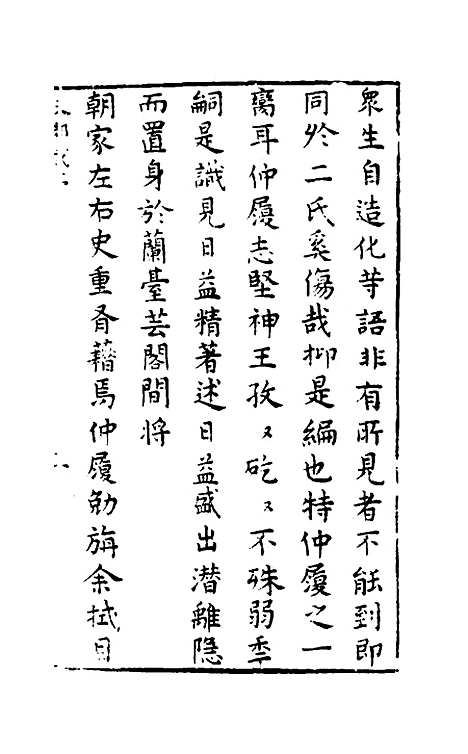 衆生自造化等語非有所見者不能到即
同於二氏奚傷哉抑是編也特仲履之一
臠耳仲履志堅神王孜〻矻〻不殊弱季
嗣是識見日益精著述日益盛出潛離隱
而置身於蘭臺芸閣間將
朝家左右史重胥藉焉仲履勉旃余拭目